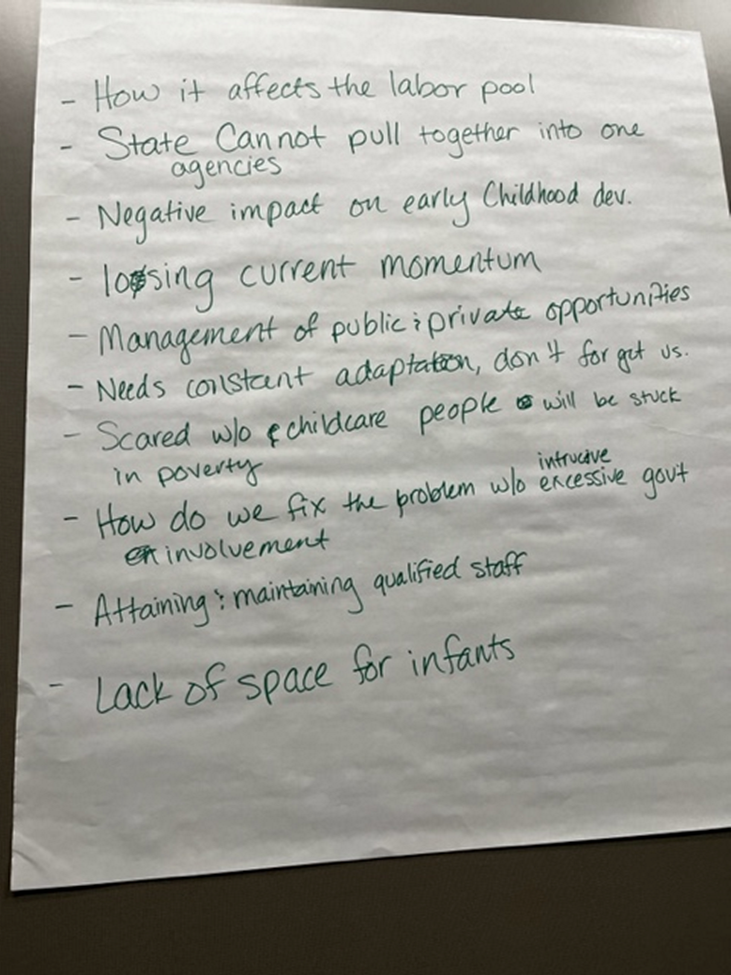 - How it affects the labor pool
- State Cannot pull together into one
agencies
- Negative impact on early Childhood dev.
- losing current momentum
- Management of public & private opportunities
- Needs constant adaptation, don't forget us.
- Scared w/o childcare people will be stuck
in poverty
intrucive
- How do we fix the problem w/o excessive gov't
involvement
- Attaining & maintaining qualified staff
- Lack of space for infants